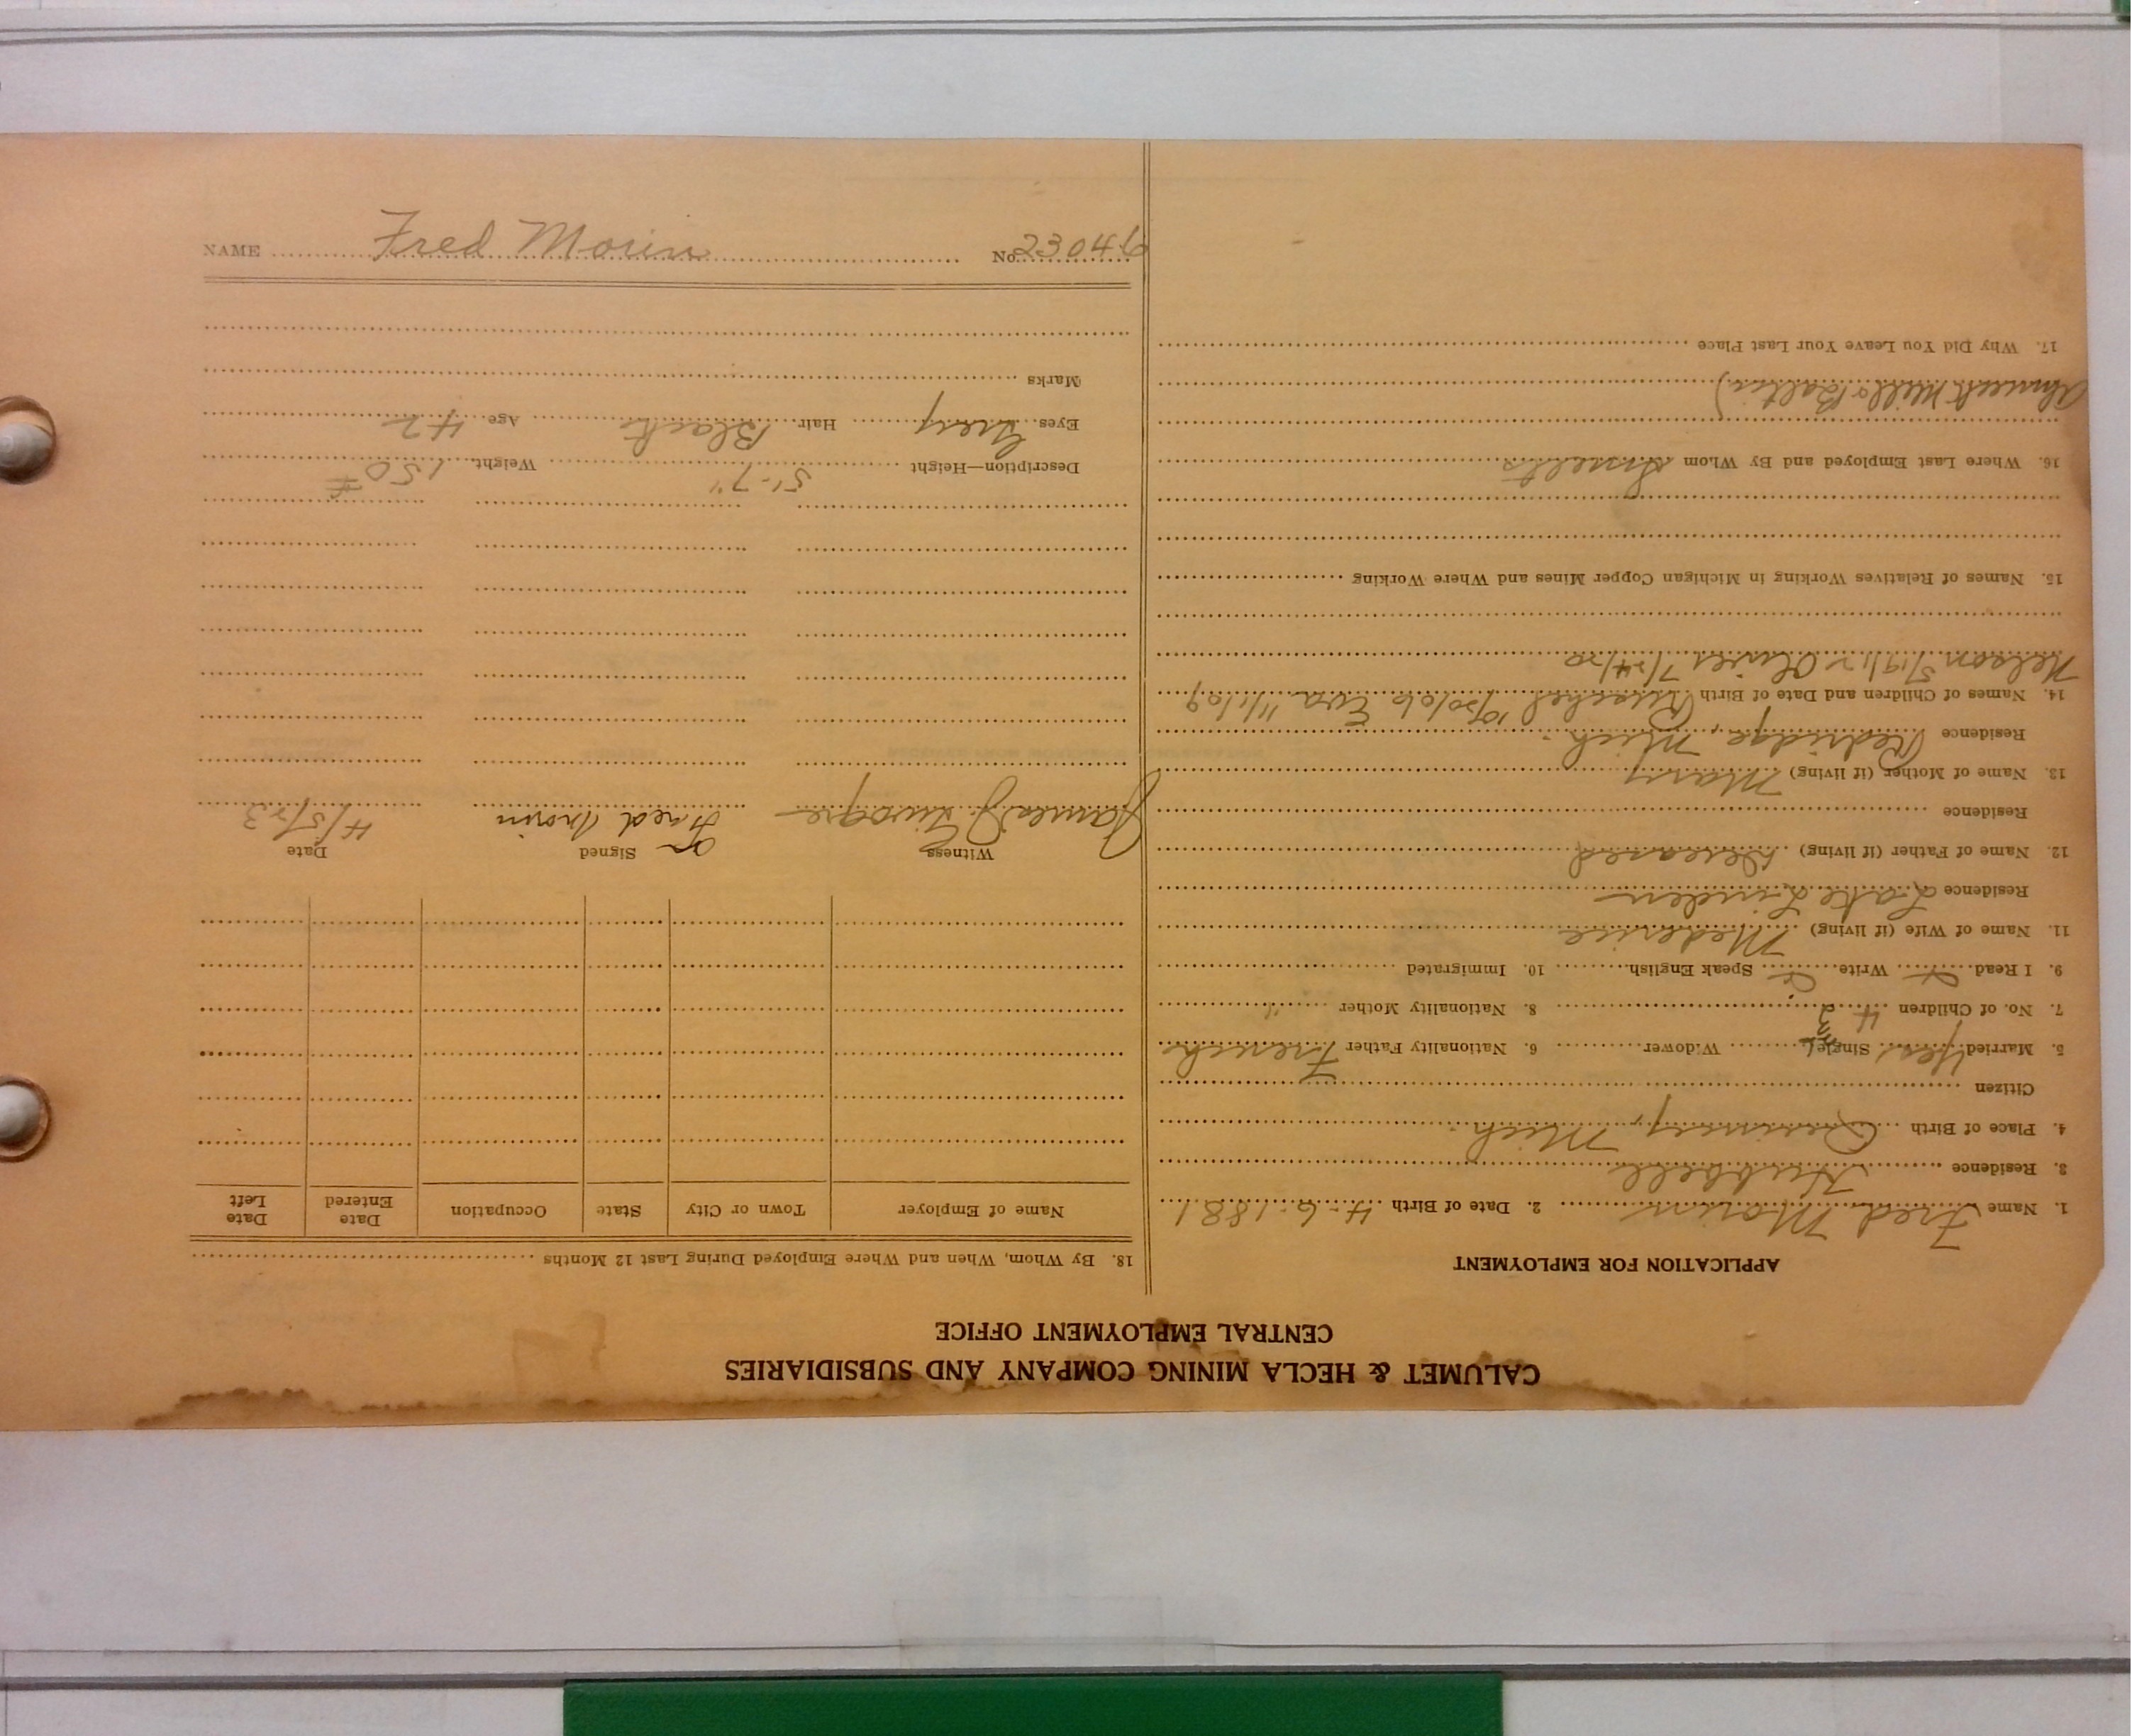 CALUMET & HECLA MINING COMPANY AND SUBSIDIARIES
CENTRAL EMPLOYMENT OFFICE
APPLICATION FOR EMPLOYMENT
1. Name Fred Morin 2. Date of Birth 4-6-1881
3. Residence Hubbell
4. Place of Birth Quincy, Mich.
Citizen
5. Married Yes Single Widower 6. Nationality Father French
7. No. of Children 4 8. Nationality Mother "
9. I Read Write Speak English 10. Immigrated
11. Name of Wife (if living) Mederise
Residence Lake Linden
12. Name of Father (if living) Deceased
Residence
13. Name of Mother (if living) Mary
Residence Redridge, Mich.
14. Names of Children and Date of Birth Rachel 10/30/06 Eva 11/1/09
Nelson 5/19/12 Oliver 7/24/20
15. Names of Relatives Working in Michigan Copper Mines and Where Working
16. Where Last Employed and By Whom
Mill Baltic)
17. Why Did You Leave Your Last Place
18. By Whom, When and Where Employed During Last 12 Months
Name of Employer Town or City State Occupation Date Entered Date Left
Witness Signed Date
James J. Fred Morin 4/5/23
Description—Height 5'-7" Weight 150 #
Eyes Grey Hair Black Age 42
Marks
NAME Fred Morin No. 23046